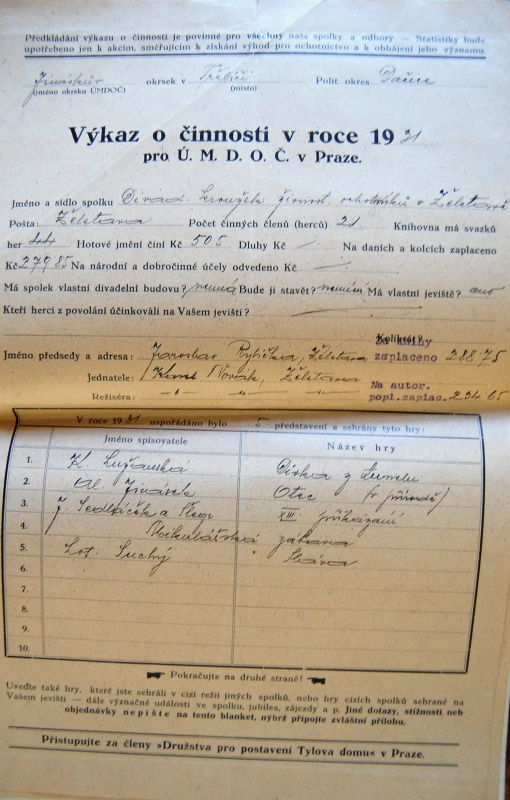 Předkládání výkazu o činnosti je povinné pro všechny naše spolky a odbory — Statistiky bude
upotřebeno jen k akcím, směřujícím k získání výhod pro ochotnictvo a k obhájení jeho významu.
Jiráskův okrsek v Třebíči Polit. okres Dačice
(jméno okrsku ÚMDOČ) (místo)
Výkaz o činnosti v roce 1931
pro Ú. M. D. O. Č. v Praze.
Jméno a sídlo spolku Divad. kroužek živnost. ochotníků v Želetavě
Pošta: Želetava Počet činných členů (herců) 21 Knihovna má svazků
her 44 Hotové jmění činí Kč 505 Dluhy Kč —/. Na daních a kolcích zaplaceno
Kč 279 85 Na národní a dobročinné účely odvedeno Kč —/.
Má spolek vlastní divadelní budovu? nemá Bude ji stavět? Má vlastní jeviště? ano
Kteří herci z povolání účinkovali na Vašem jevišti?
Kolikrát?
Za knihy
Jméno předsedy a adresa: Jaroslav Rybička, Želetava zaplaceno 288 75
Jednatele: Karel Novák, Želetava
Na autor.
Režiséra: — " — " — " — popl. zaplac. 234 65
V roce 1931 uspořádáno bylo 5 představení a sehrány tyto hry:
Jméno spisovatele Název hry
1. K. Lužanská Dívka z
2. Al. Jirásek Otec (v přírodě)
3. J. Sedláček a XIII. přikázání
4. Mikulášská zábava
5. Lot. Suchý Sláva
6.
7.
8.
9.
10.
Pokračujte na druhé straně!
Uveďte také hry, které jste sehráli v cizí režii jiných spolků, nebo hry cizích spolků sehrané na
Vašem jevišti — dále význačné události ve spolku, jubilea, zájezdy a p. Jiné dotazy, stížnosti neb
objednávky nepište na tento blanket, nýbrž připojte zvláštní přílohu.
Přistupujte za členy »Družstva pro postavení Tylova domu« v Praze.